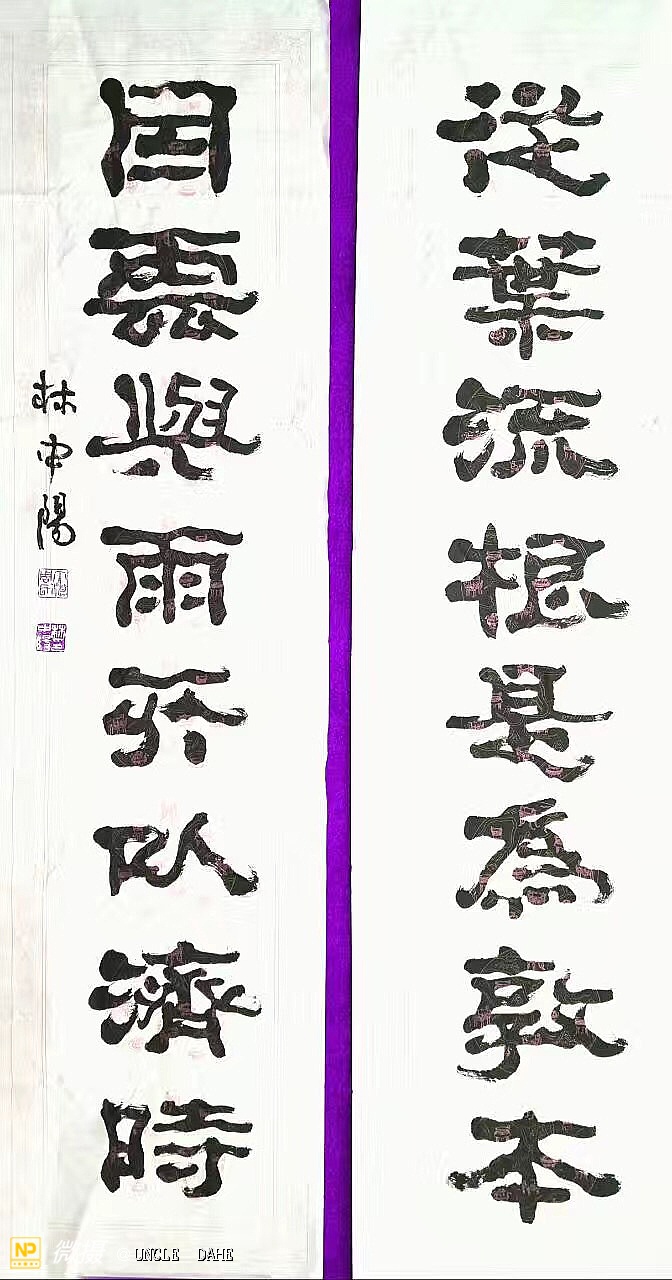 從葉流根是為敦本
因雲與雨所以濟時
林中陽
NP
UNCLE DAHE